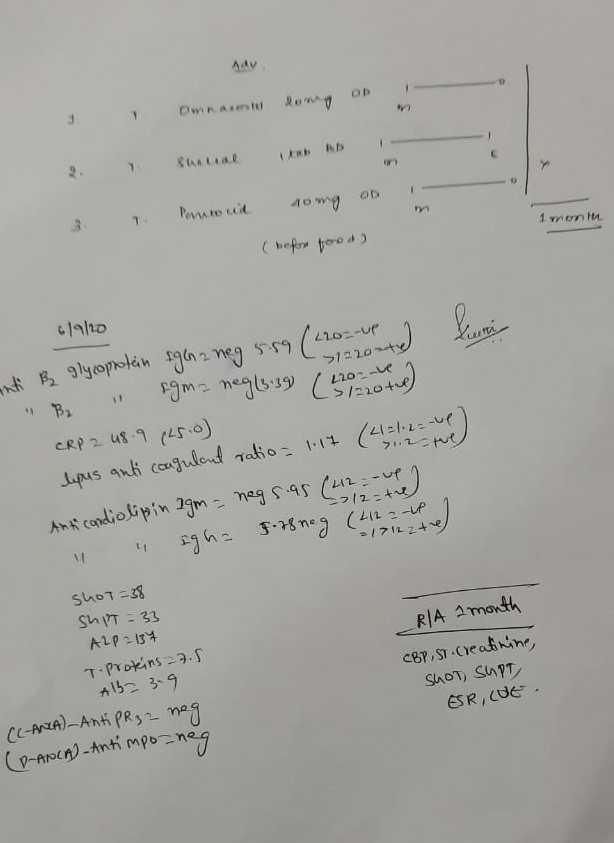 Adv.
1. T. Omnacortil 20mg OD 1 —— 0
m
2. T. Shelcal 1 tab BD 1 —— 1
m E
3. T. Pantocid 40mg OD 1 —— 0
m
(before food)
1 month
6/9/20
Anti B2 glycoprotein IgG = neg 5.59 (<20=-ve
>/=20=+ve)
" B2 " Igm = neg (3.39) (<20=-ve
>/=20+ve)
CRP = 48.9 (<5.0)
lupus anti coagulant ratio = 1.17 (<1=1.2=-ve
>1.2=+ve)
Anti cardiolipin Igm = neg 5.95 (<12=-ve
=>12=+ve)
" " Igh = 5.78 neg (<12=-ve
=/>12=+ve)
SGOT = 38
SGPT = 33
ALP = 137
T. Proteins = 7.5
Alb = 3.9
(C-ANCA) - Anti PR3 = neg
(P-ANCA) - Anti MPO = neg
R/A 1 month
CBP, Sr. Creatinine,
SGOT, SGPT,
ESR, CUE.